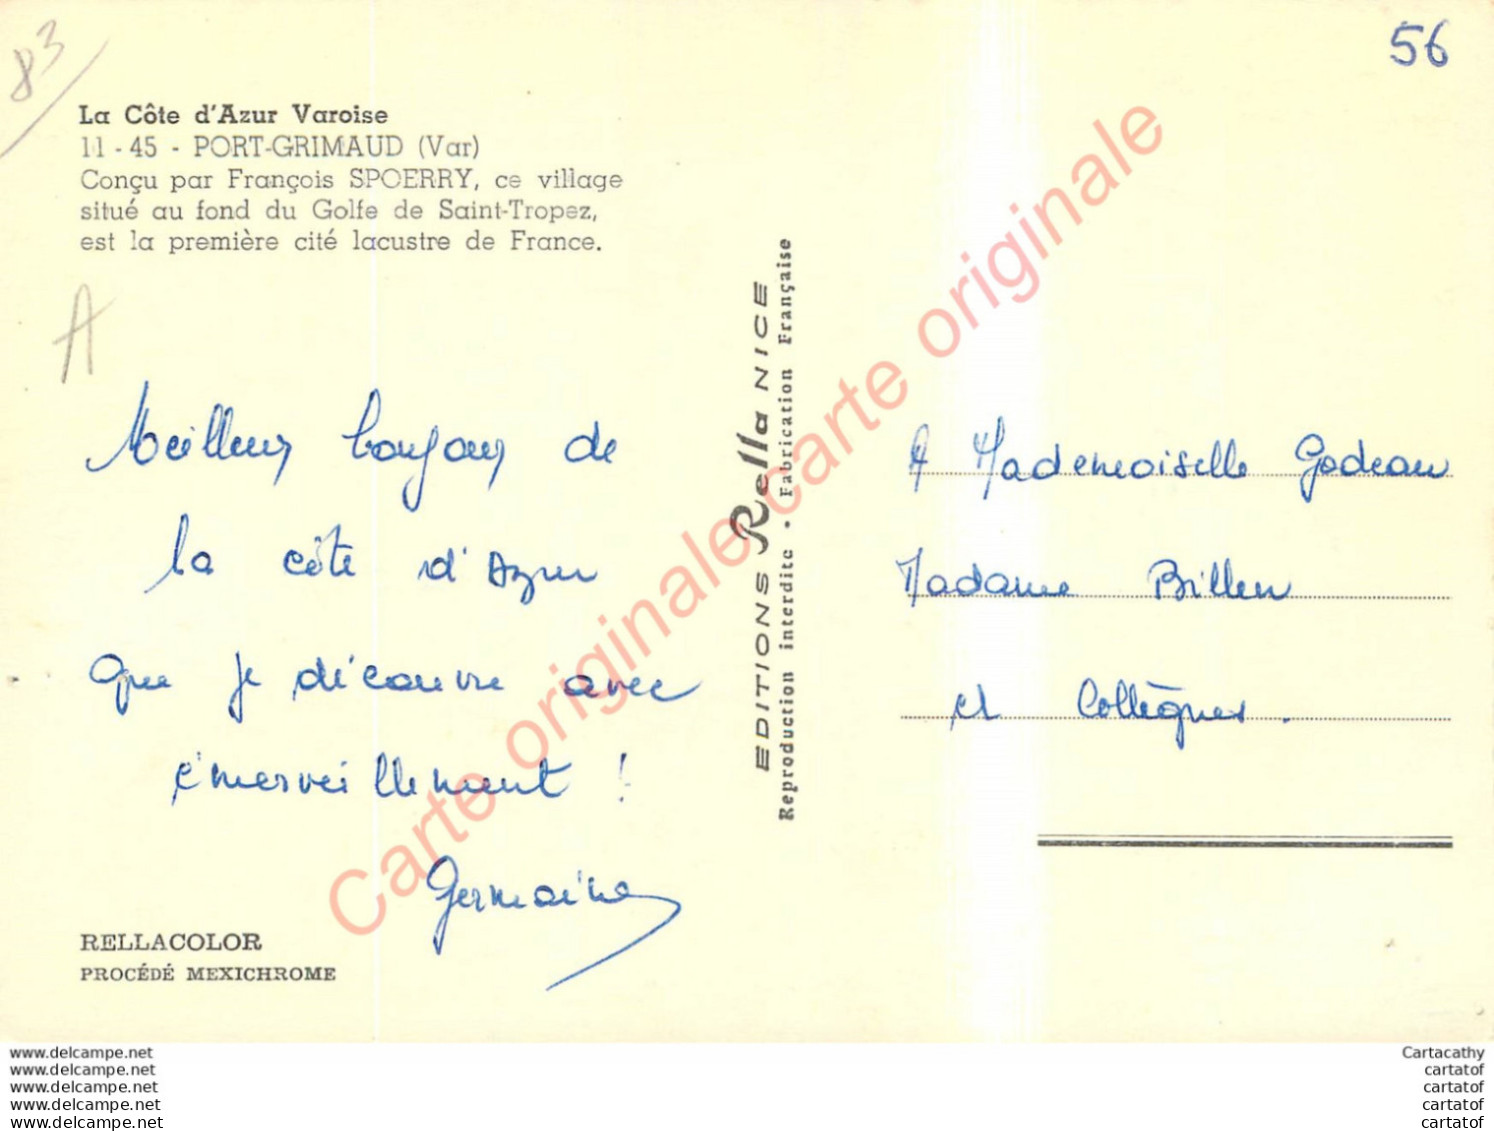 83
56
La Côte d'Azur Varoise
11 - 45 - PORT-GRIMAUD (Var)
Conçu par François SPOERRY, ce village
situé au fond du Golfe de Saint-Tropez,
est la première cité lacustre de France.
A
Meilleurs bonjours de
la côte d'Azur
que je découvre avec
émerveillement !
Germaine
RELLACOLOR
PROCÉDÉ MEXICHROME
EDITIONS Rella NICE
Reproduction interdite • Fabrication Française
A Mademoiselle Godeau
Madame Biller
et Collègues.
Carte originale carte originale carte originale
www.delcampe.net
www.delcampe.net
www.delcampe.net
www.delcampe.net
www.delcampe.net
Cartacathy
cartatof
cartatof
cartatof
cartatof